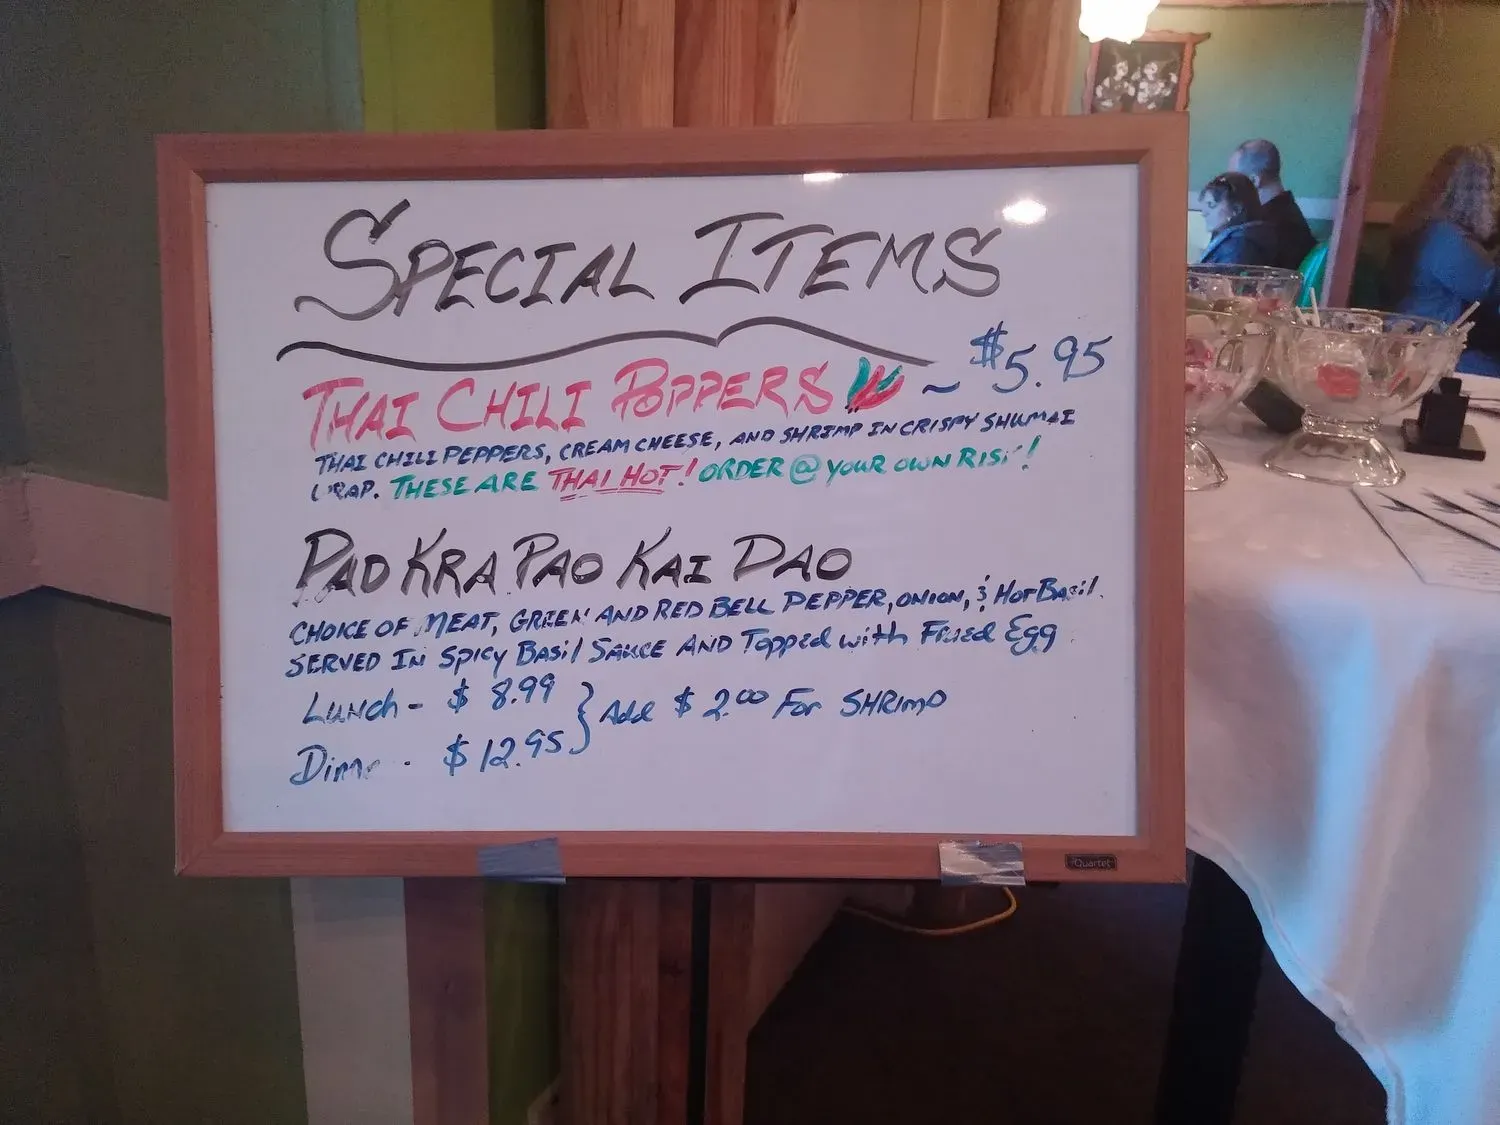 SPECIAL ITEMS
THAI CHILI POPPERS ~ $5.95
THAI CHILI PEPPERS, CREAM CHEESE, AND SHRIMP IN CRISPY SHUMAI
WRAP. THESE ARE THAI HOT! ORDER @ YOUR OWN RISK!
PAD KRA PAO KAI DAO
CHOICE OF MEAT, GREEN AND RED BELL PEPPER, ONION, & HOT BASIL.
SERVED IN SPICY BASIL SAUCE AND TOPPED WITH FRIED EGG
LUNCH - $ 8.99 } Add $ 2.00 For SHRIMP
Dinner - $ 12.95
Quartet